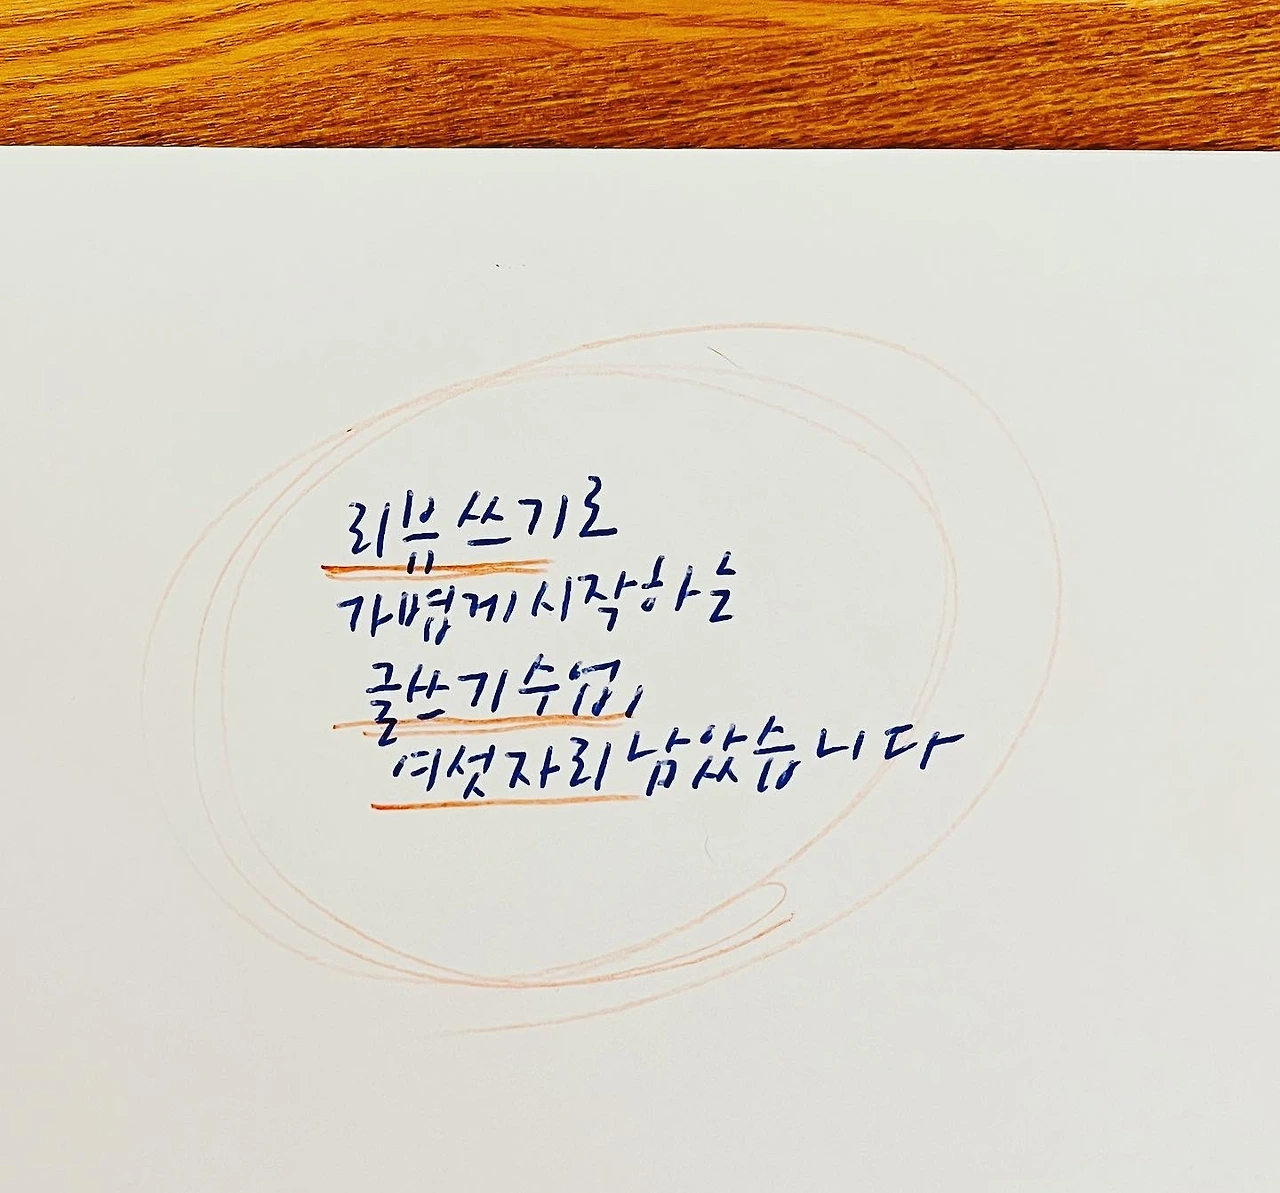 리뷰 쓰기로
가볍게 시작하는
글쓰기 수업,
여섯 자리 남았습니다